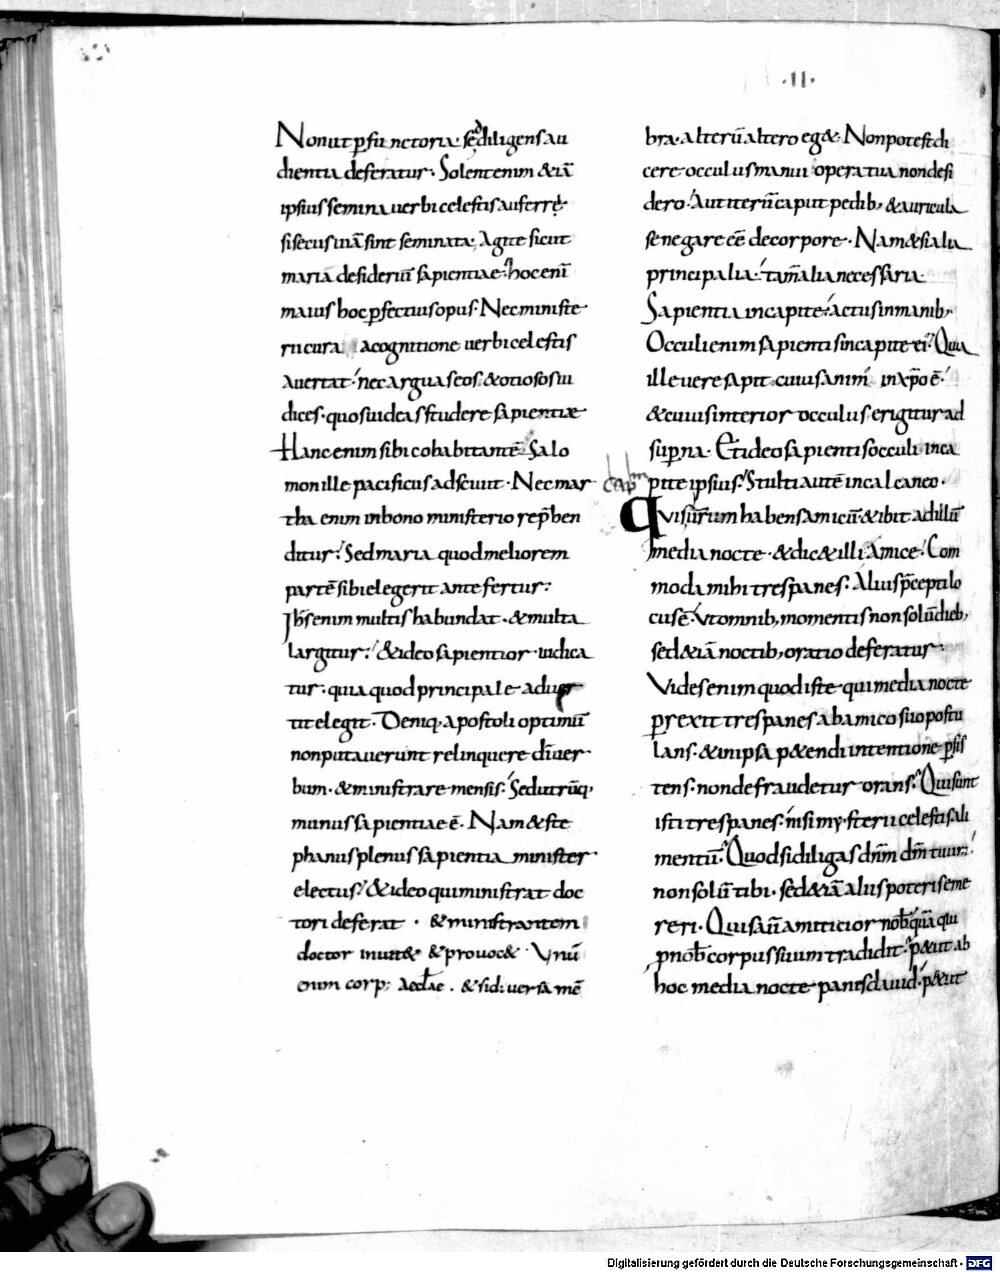 ·II·
Non ut ꝑfunctoria· sed diligens au
dientia deferatur· Solent enim & iā
ipsius semina uerbi celestis auferre·
si secus uiā sint seminata; Agite sicut
maria desideriū sapientiae· hoc enī
maius hoc ꝑfectius opus· Nec ministe
rii cura a cognitione uerbi celestis
auertat· nec arguas eos· & otiosos iu
dices· quos uideas studere sapientiae
Hanc enim sibi cohabitantē Salo
mon ille pacificus adsciuit· Nec mar
tha enim in bono ministerio rep̄hen
ditur· Sed maria quod meliorem
partē sibi elegerit antefertur·
Ih̄s enim multis habundat· & multa
largitur· & ideo sapientior iudica
tur· quia quod principale aduer
tit elegit· Deniq, apostoli optimū
non putauerunt relinquere dī uer
bum· & ministrare mensis· Sed utrūq,
munus sapientiae ē· Nam & ste
phanus plenus sapientia minister
electus· & ideo qui ministrat doc
tori deferat· & ministrantem
doctor inuit& & prouoc& · Vnū
enim corp; aecłae· & si diuersa mē
bra· alterū altero eg&· Non potest di
cere occulus manui opera tua non desi
dero· Aut iterū caput pedib, & auricula
se negare eē de corpore· Nam & si alia
principalia· tam̄ alia necessaria·
Sapientia in capite· actus in manib,
Occuli enim sapientis in capite ei'· Quia
ille uere sapit cuius anim' in xp̄o ē·
& cuius interior occulus erigitur ad
superna· Et ideo sapientis occuli in ca
pite ipsius· Stulti autē in calcaneo·
capłm
Qvis ur̄um habens amicū· & ibit ad illū
media nocte· & dic& illi Amice· Com
moda mihi tres panes· Alius p̄cepti lo
cus ē· Vt omnib, momentis non solū dieb,
sed & iā noctib, oratio deferatur·
Vides enim quod iste qui media nocte
perrexit tres panes ab amico suo postu
lans· & in ipsa p&endi intentione ꝑsis
tens· non defraudetur orans· Qui sunt
isti tres panes· nisi mysterii celestis ali
mentū· Quod si diligas dn̄m dm̄ tuum·
non solū tibi· sed & iā aliis poteris eme
reri· Quis aut̄ amiticior nob̄ quā qui
ꝓ nob̄ corpus suum tradidit· p&iit ab
hoc media nocte panis dauid· p&iit
Digitalisierung gefördert durch die Deutsche Forschungsgemeinschaft - DFG